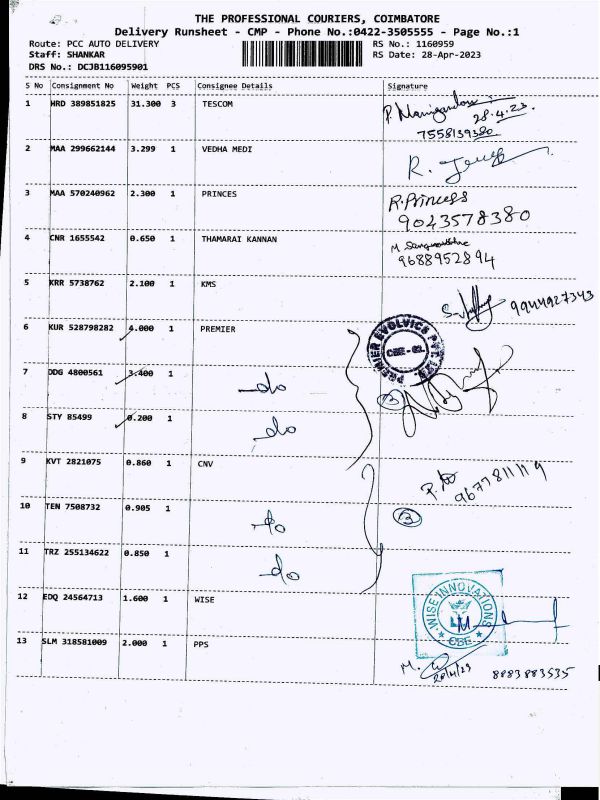 THE PROFESSIONAL COURIERS, COIMBATORE
Delivery Runsheet - CMP - Phone No.:0422-3505555 - Page No.:1
Route: PCC AUTO DELIVERY RS No.: 1160959
Staff: SHANKAR RS Date: 28-Apr-2023
DRS No.: DCJB116095901
S No Consignment No Weight PCS Consignee Details Signature
1 HRD 389851825 31.300 3 TESCOM
28.4.23.
7558139380
2 MAA 299662144 3.299 1 VEDHA MEDI R.
3 MAA 570240962 2.300 1 PRINCES R.Princess
9043578380
4 CNR 1655542 0.650 1 THAMARAI KANNAN
9688952894
5 KRR 5738762 2.100 1 KMS 9944927343
6 KUR 528798282 4.000 1 PREMIER
PREMIER EVOLVICS PVT. LTD.
CBE-02.
7 DDG 4800561 3.400 1 -do 3
8 STY 85499 0.200 1 do
9 KVT 2821075 0.860 1 CNV 9677811119
10 TEN 7508732 0.905 1 -do 3
11 TRZ 255134622 0.850 1 -do
12 EDQ 24564713 1.600 1 WISE
WISE INNOVATIONS
CBE
13 SLM 318581009 2.000 1 PPS M.
28/4/23 8883883535